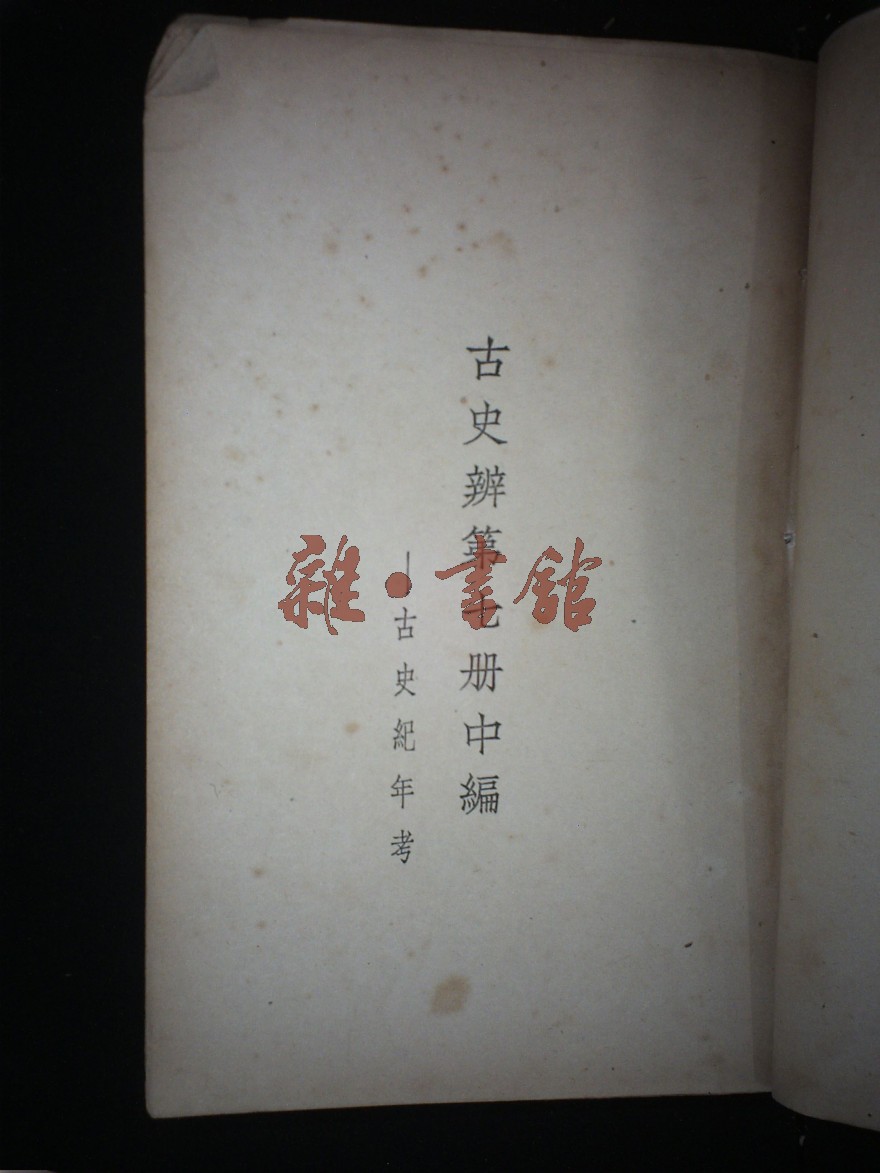 古史辨第七册中編
—古史紀年考
雜·書館